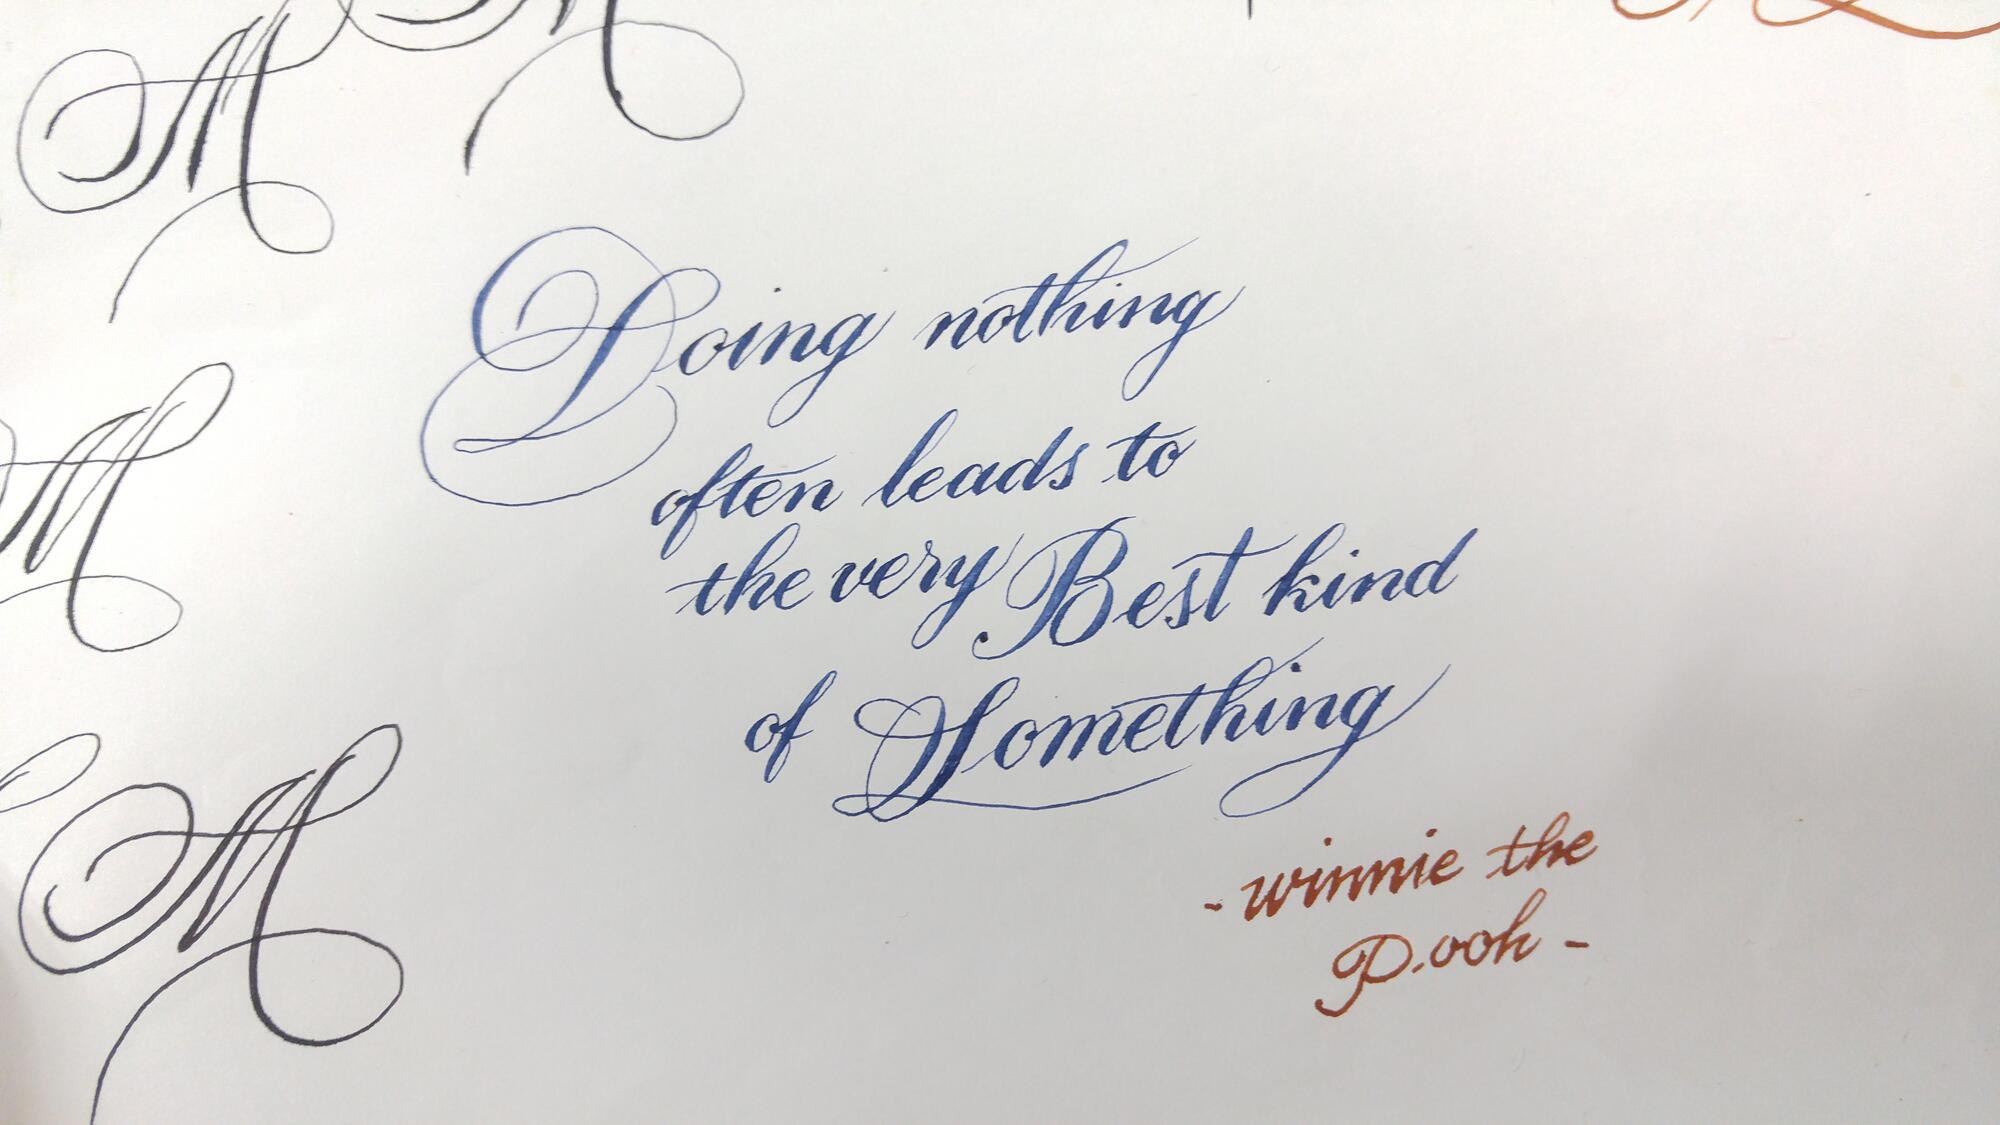 M
M
Doing nothing
often leads to
M
the very Best kind
of Something
M
- winnie the
P.ooh -